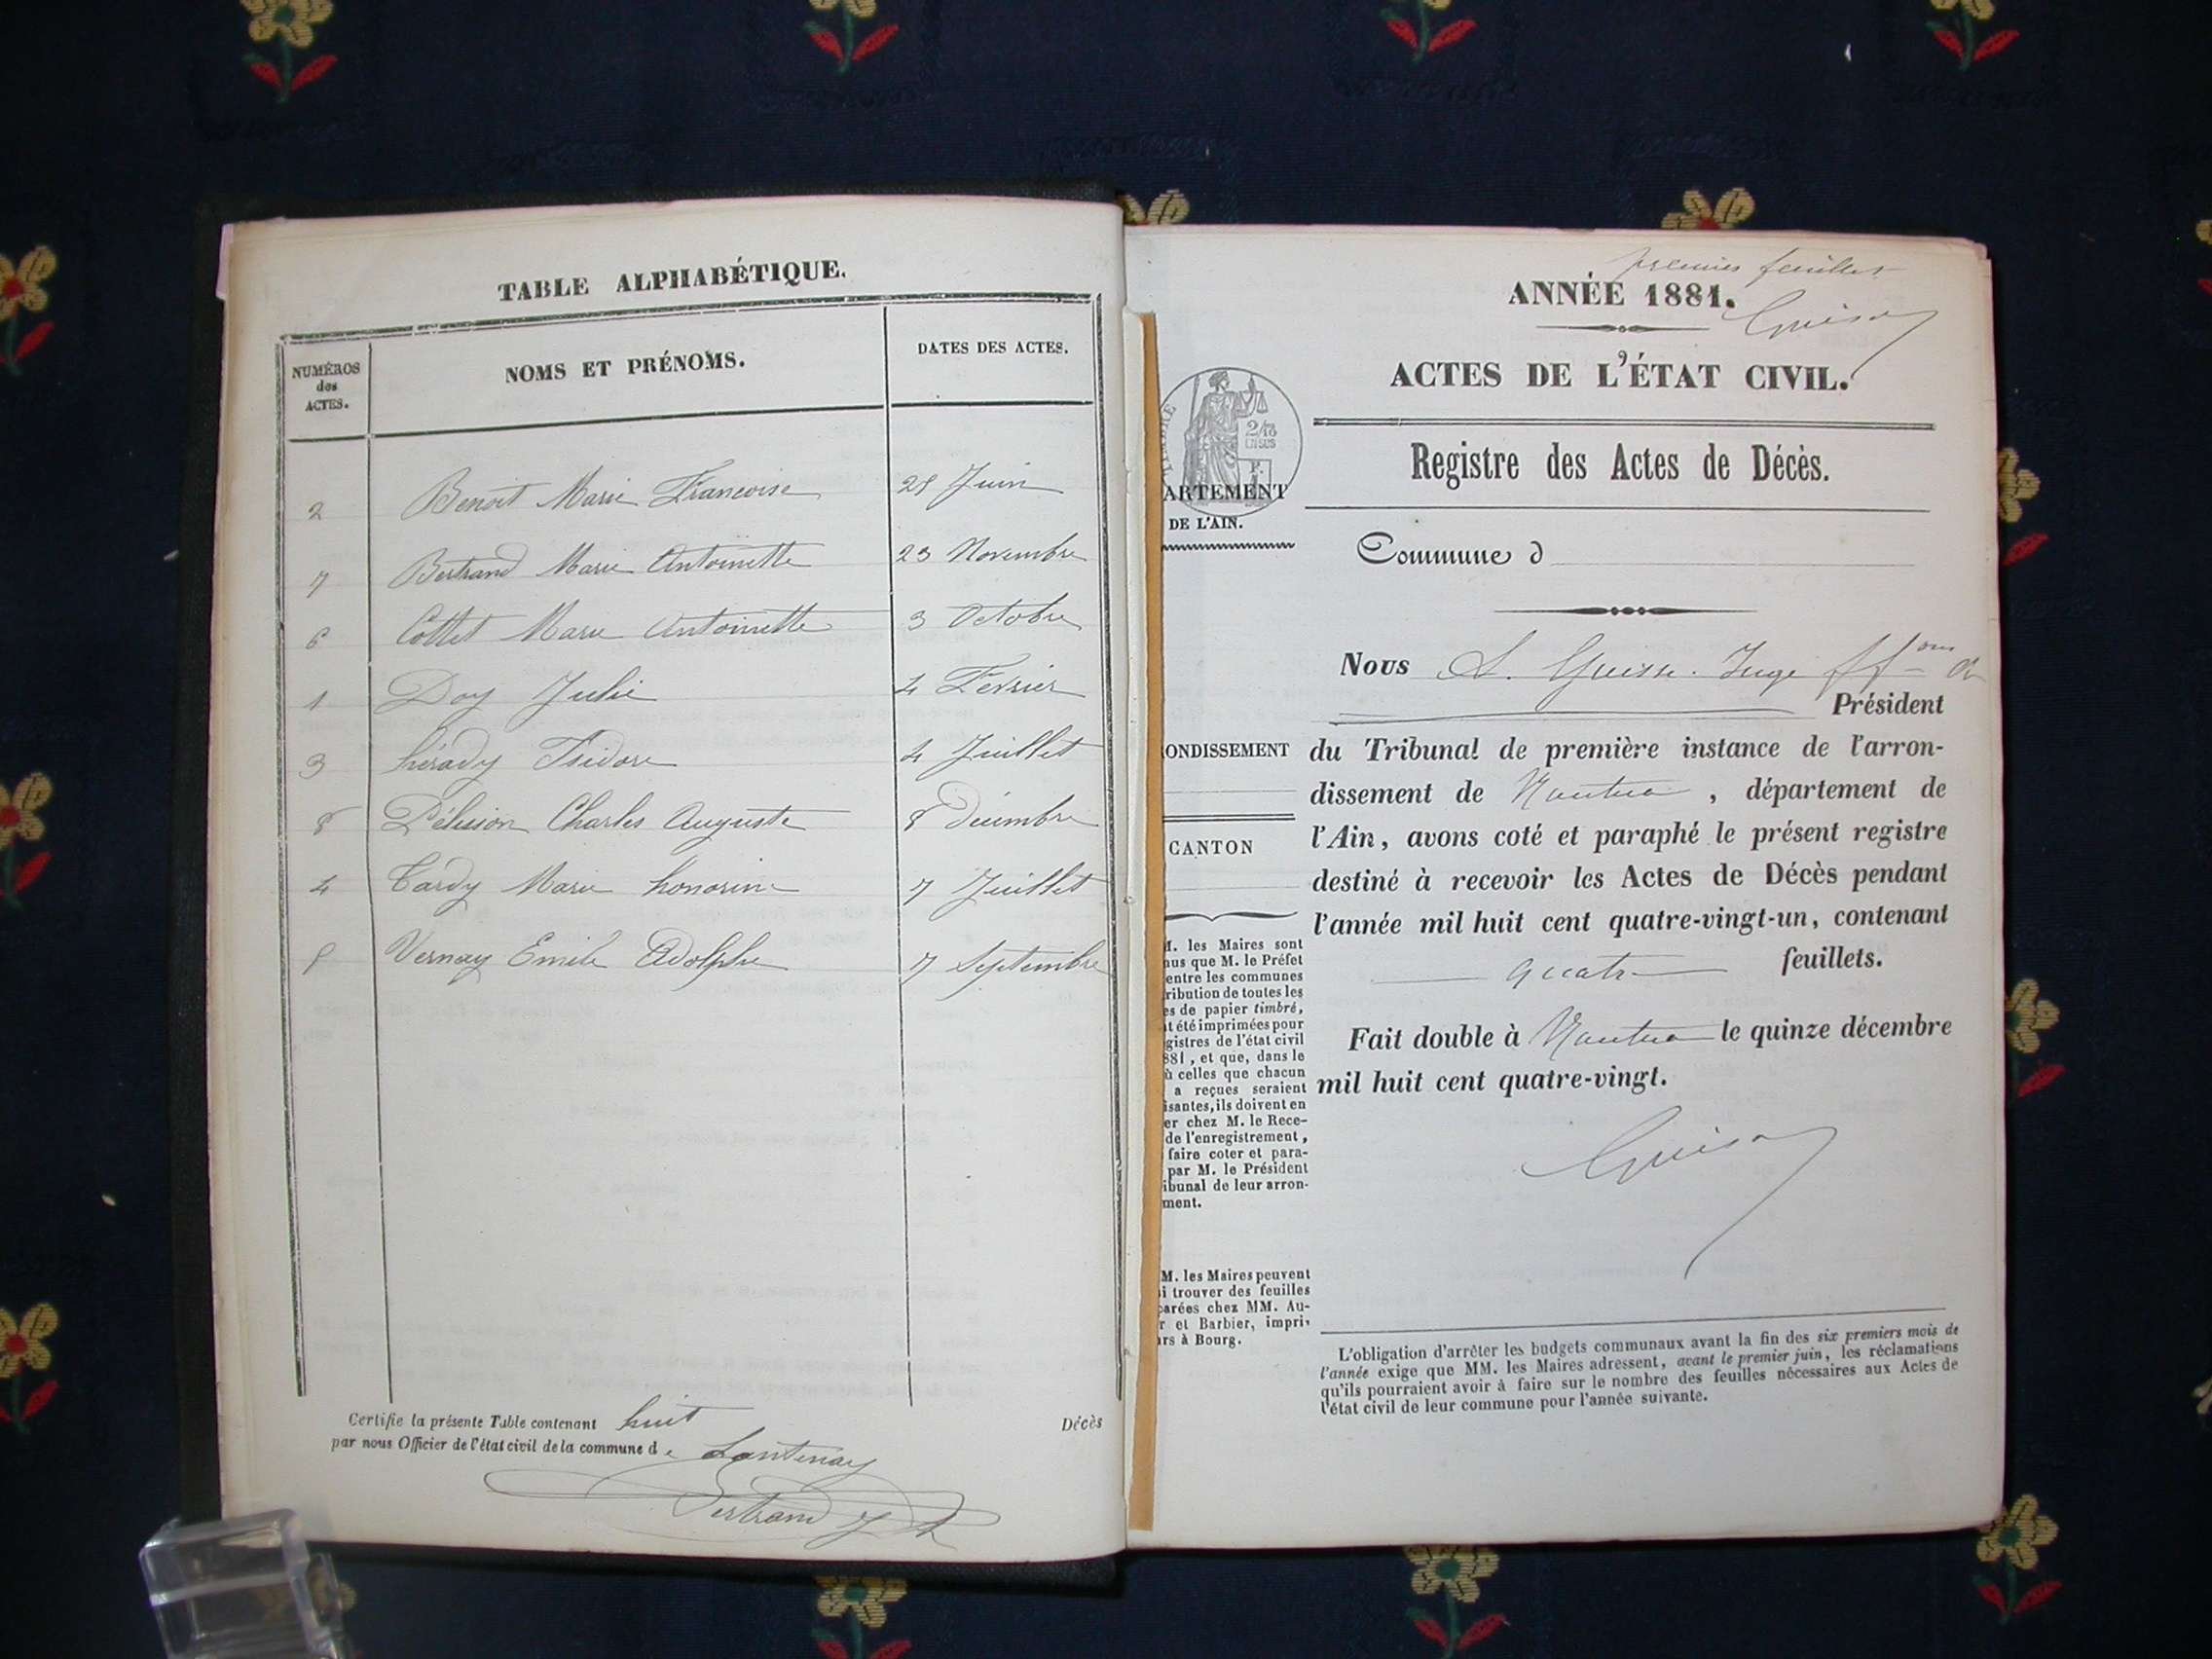 TABLE ALPHABÉTIQUE.
NUMÉROS des ACTES.
NOMS ET PRÉNOMS.
DATES DES ACTES.
2 Benoit Marie Francoise 25 Juin
7 Bertrand Marie Antoinette 23 Novembre
6 Cottet Marie Antoinette 3 Octobre
1 Doy Julie 4 Fevrier
3 hérady Isidore 4 Juillet
8 Pélisson Charles Auguste 8 Décembre
4 Tardy Marie honorine 7 Juillet
Vernay Emile Adolphe 7 Septembre
Certifie la présente Table contenant huit Décès
par nous Officier de l'état civil de la commune de Lantenay
Bertrand
premier feuillet
ANNÉE 1881.
ACTES DE L'ÉTAT CIVIL.
Registre des Actes de Décès.
ARTEMENT
DE L'AIN.
Commune d
Nous Juge
Président
ONDISSEMENT
du Tribunal de première instance de l'arron-
dissement de Nantua, département de
l'Ain, avons coté et paraphé le présent registre
CANTON
destiné à recevoir les Actes de Décès pendant
l'année mil huit cent quatre-vingt-un, contenant
quatre feuillets.
Fait double à Nantua le quinze décembre
mil huit cent quatre-vingt.
M. les Maires sont
nus que M. le Préfet
entre les communes
ribution de toutes les
es de papier timbré,
t été imprimées pour
gistres de l'état civil
881, et que, dans le
ù celles que chacun
a reçues seraient
isantes, ils doivent en
er chez M. le Rece-
de l'enregistrement,
faire coter et para-
par M. le Président
ibunal de leur arron-
ment.
M. les Maires peuvent
i trouver des feuilles
parées chez MM. Au-
r et Barbier, impri-
urs à Bourg.
L'obligation d'arrêter les budgets communaux avant la fin des six premiers mois de
l'année exige que MM. les Maires adressent, avant le premier juin, les réclamations
qu'ils pourraient avoir à faire sur le nombre des feuilles nécessaires aux Actes de
l'état civil de leur commune pour l'année suivante.